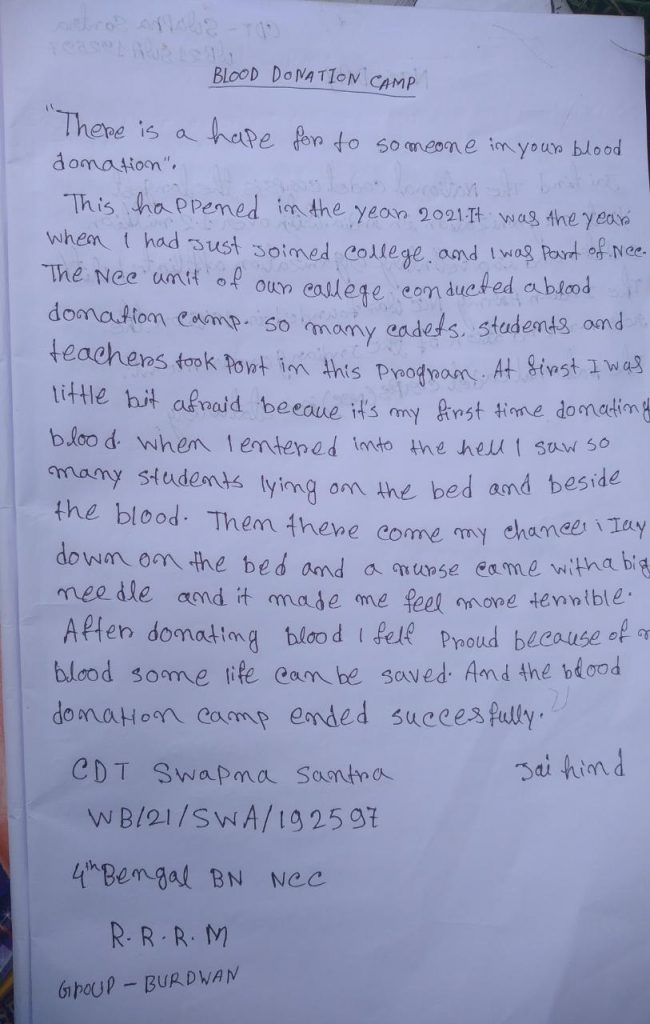 BLOOD DONATION CAMP
"There is a hape for to someone in your blood
donation".
This happened in the year 2021. It was the year
when I had Just Joined college, and I was Part of Ncc.
The Ncc unit of our callege conducted a blood
donation camp. so many cadets, students and
teachers took Part in this program. At first I was
little bit afraid becaue it's my first time donating
blood. when I entered into the hell I saw so
many students lying on the bed and beside
the blood. Then there come my chance i lay
down on the bed and a nurse came with a big
needle and it made me feel more terrible.
After donating blood I felt Proud because of
blood some life can be saved. And the blood
donation camp ended succesfully.
CDT Swapna Santra
Jai hind
WB/21/SWA/192597
4th Bengal BN NCC
R.R.R.M
Group - BURDWAN